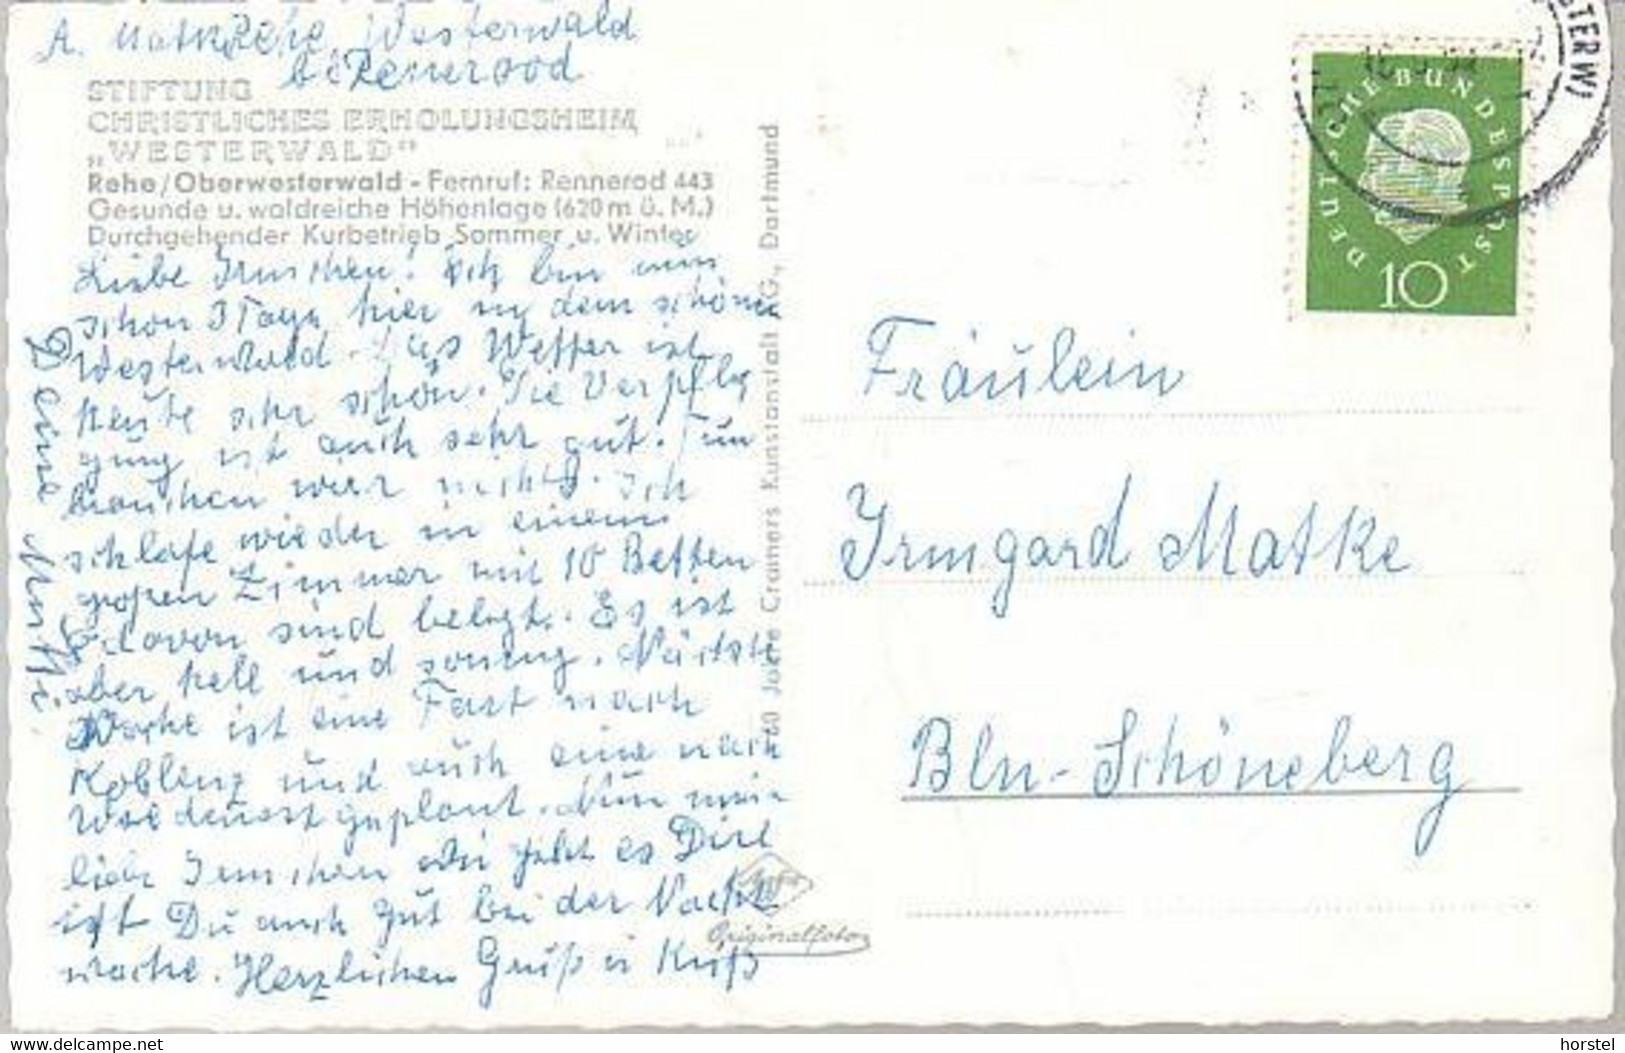 A. Matke Rehe, Westerwald
über Rennerod
STIFTUNG
CHRISTLICHES ERHOLUNGSHEIM
„WESTERWALD"
Rehe/Oberwesterwald - Fernruf: Rennerod 443
Gesunde u. waldreiche Höhenlage (620 m ü. M.)
Durchgehender Kurbetrieb Sommer u. Winter
Liebe Irmchen! Ich bin nun
schon 3 Tage hier in dem schönen
Westerwald. Das Wetter ist
heute sehr schön. Die Verpfle
gung ist auch sehr gut. Tun
brauchen wir nichts. Ich
schlafe wieder in einem
großen Zimmer mit 10 Betten
davon sind belegt. Es ist
aber hell und sonnig. Nächste
Woche ist eine Fart nach
Koblenz und auch eine nach
geplant. Nun mein
liebe Irmchen wie geht es Dir
ißt Du auch gut bei der Nacht
wache. Herzlichen Gruß u Kuß
Deine Mutti.
Jos. Cramers Kunstanstalt KG., Dortmund
Agfa
Originalfoto
DEUTSCHE BUNDESPOST
10
STERW)
Fräulein
Irmgard Matke
Bln-Schöneberg
delcampe.net
horstel